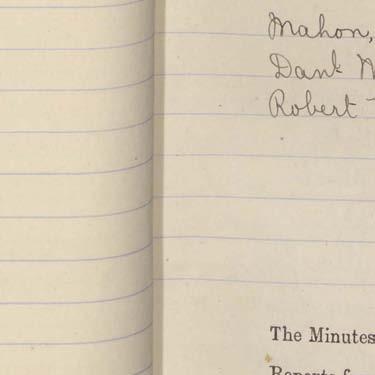 Mahon,
Danl
Robert
The Minutes
Reports f